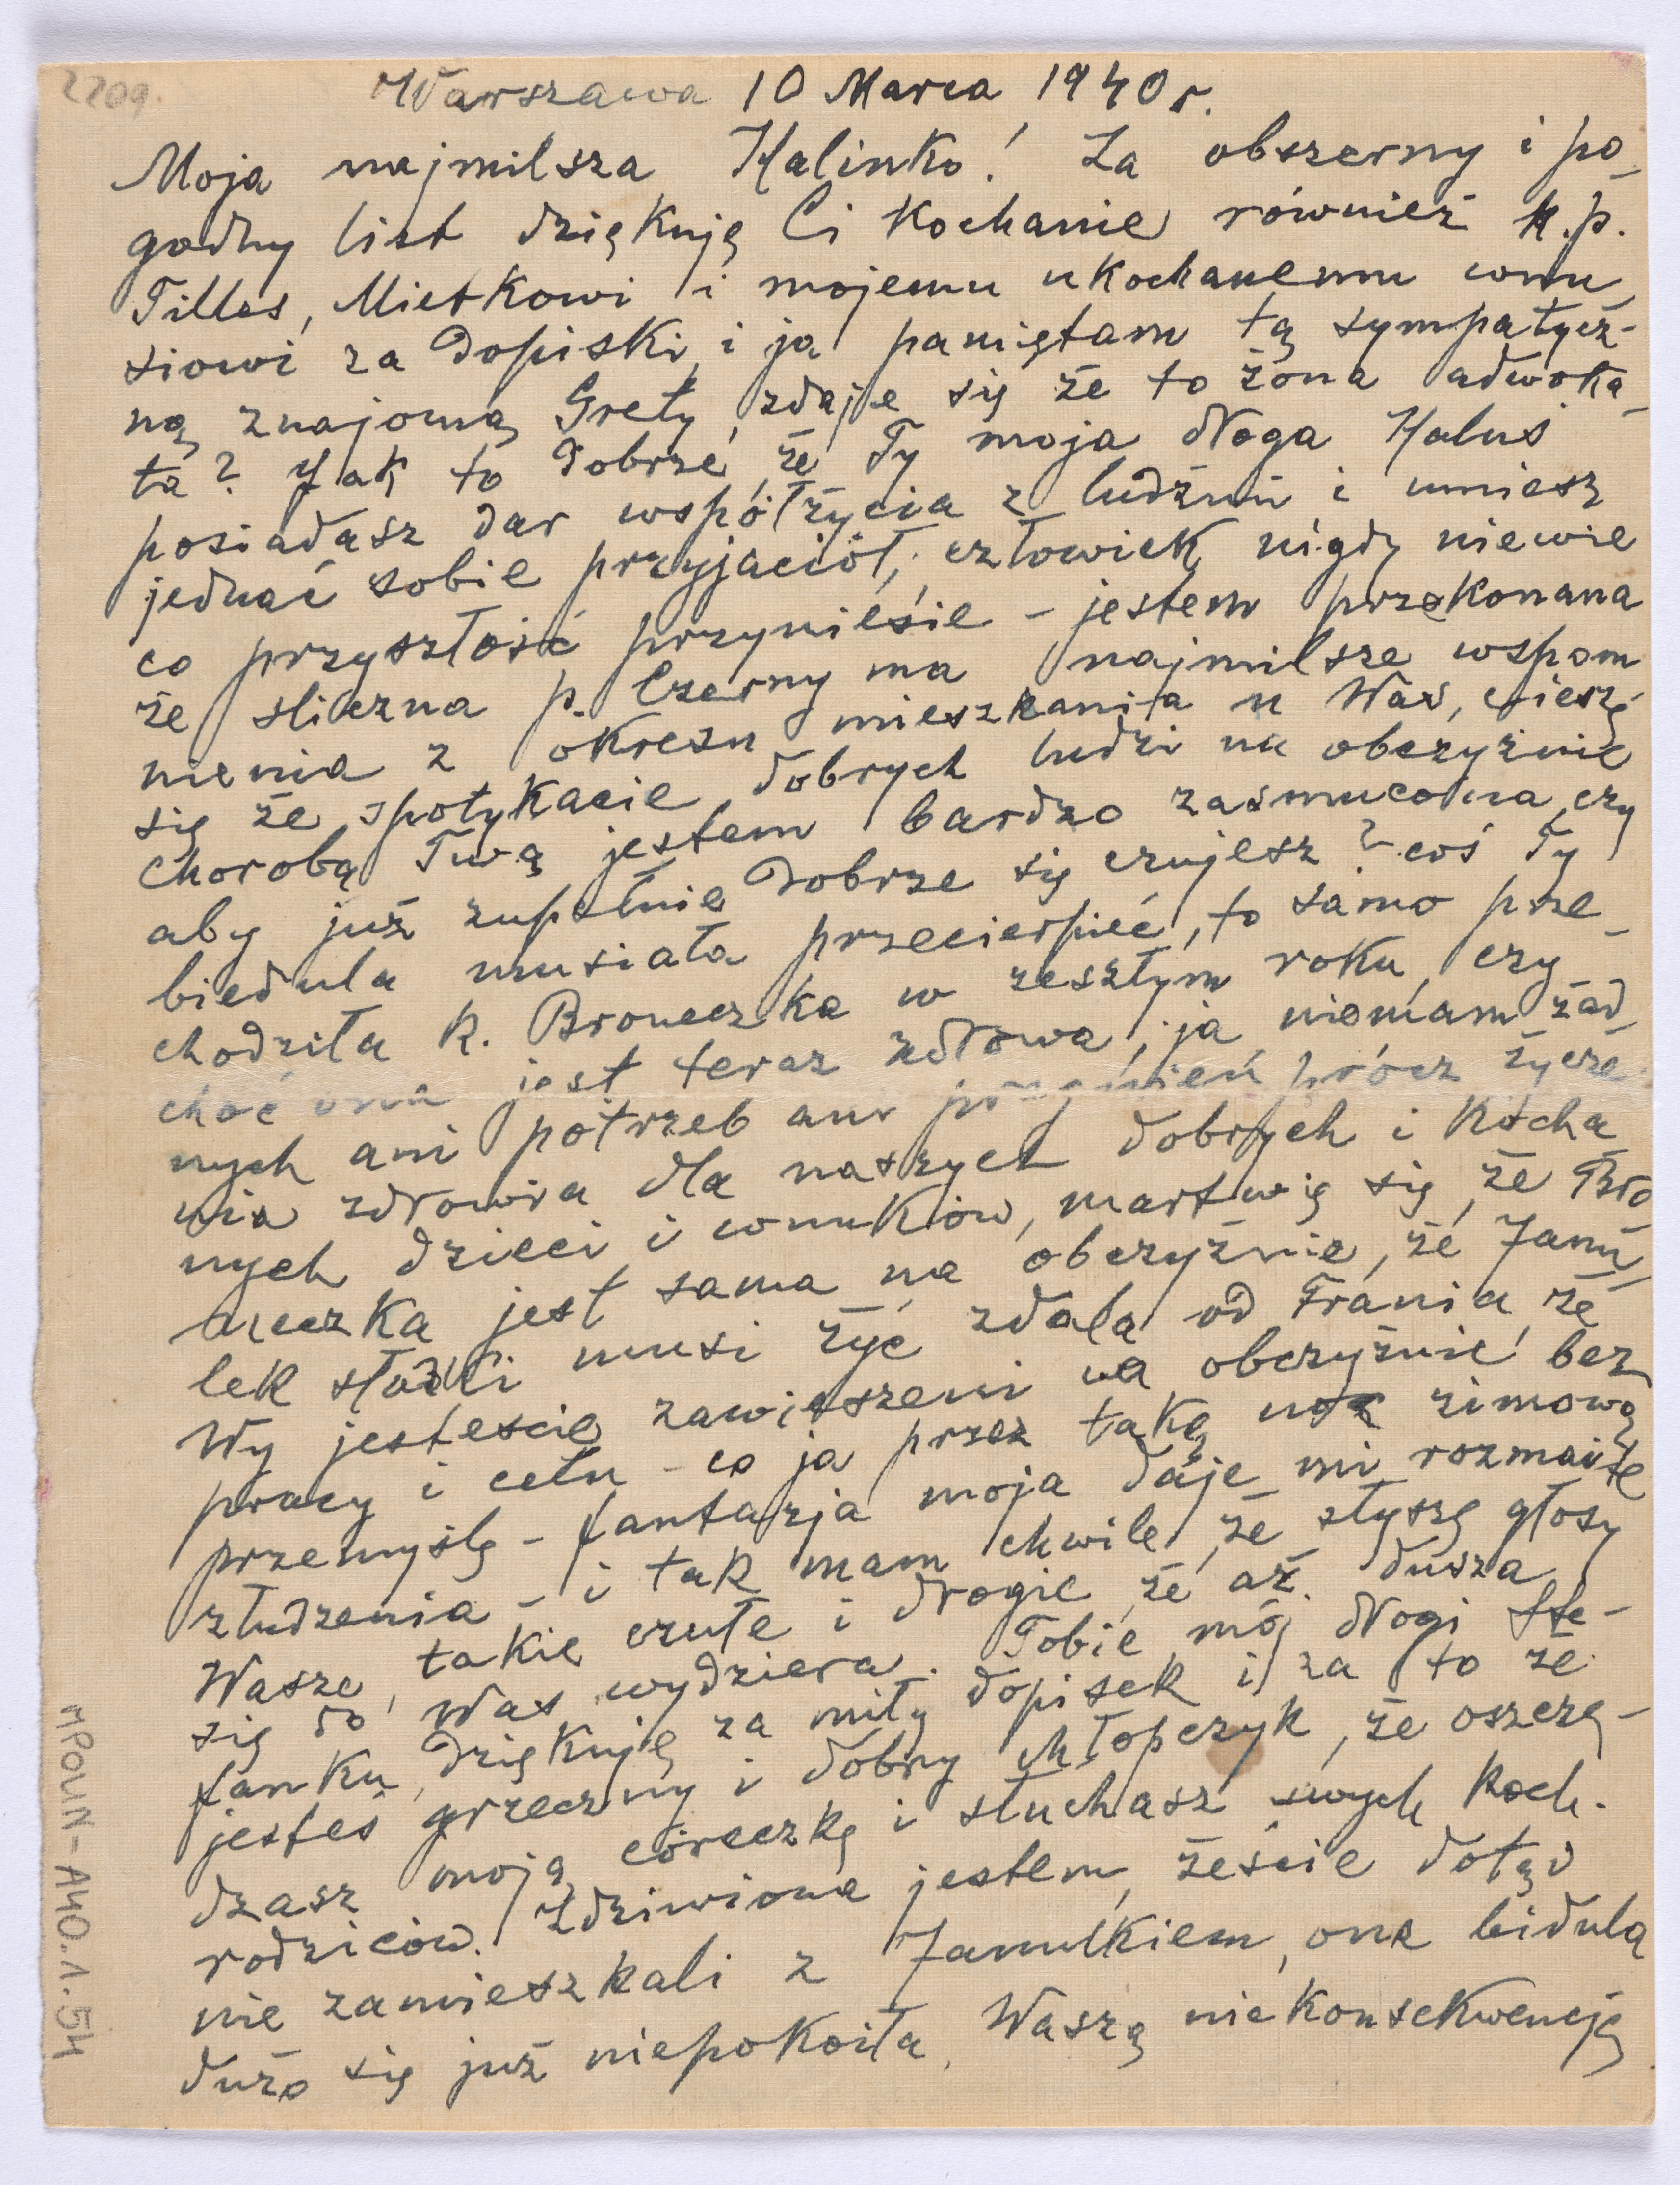 2209
Warszawa 10 Marca 1940 r.
Moja najmilsza Halinko! Za obszerny i po
godny list dziękuję Ci kochanie również k.p.
Tilles, Mietkowi i mojemu ukochanemu wnu
siowi za dopiski, i ja pamiętam tą sympatycz-
ną znajomą Grety, zdaje się że to żona adwoka
ta? Jak to dobrze, że Ty moja droga Haluś
posiadasz dar współżycia z ludźmi i umiesz
jednać sobie przyjaciół, człowiek nigdy niewie
co przyszłość przyniesie - jestem przekonana
że śliczna p. Czerny ma najmilsze wspom
nienia z okresu mieszkania u Was, cieszę
się że spotykacie dobrych ludzi na obczyźnie
Chorobą Twą jestem bardzo zasmucona, czy
aby już zupełnie dobrze się czujesz? coś Ty
biedula musiała przecierpieć, to samo prze-
chodziła k. Broneczka w zeszłym roku, czy
choć ona jest teraz zdrowa, ja niemam żad
nych ani potrzeb ani pragnień prócz życze
nia zdrowia dla naszych dobrych i kocha
nych dzieci i wnuków, martwię się, że Bro
neczka jest sama na obczyźnie, że Janu
lek słodki musi żyć zdala od Frania, że
Wy jesteście zawieszeni na obczyźnie bez
pracy i celu - co ja przez taką noc zimową
przemyślę - fantazja moja daje mi rozmaite
złudzenia - i tak mam chwile, że słyszę głosy
Wasze, takie czułe i drogie, że aż dusza
się do Was wydziera. Tobie mój drogi Ste-
fanku, dziękuję za miły dopisek i za to że
jesteś grzeczny i dobry chłopczyk, że oszczę-
dzasz moją córeczkę i słuchasz swych koch.
rodziców. Zdziwiona jestem, żeście dotąd
nie zamieszkali z Janulkiem, ona bidula
dużo się już niepokoiła, Waszą niekonsekwencję
MPOLIN-A40.1.54